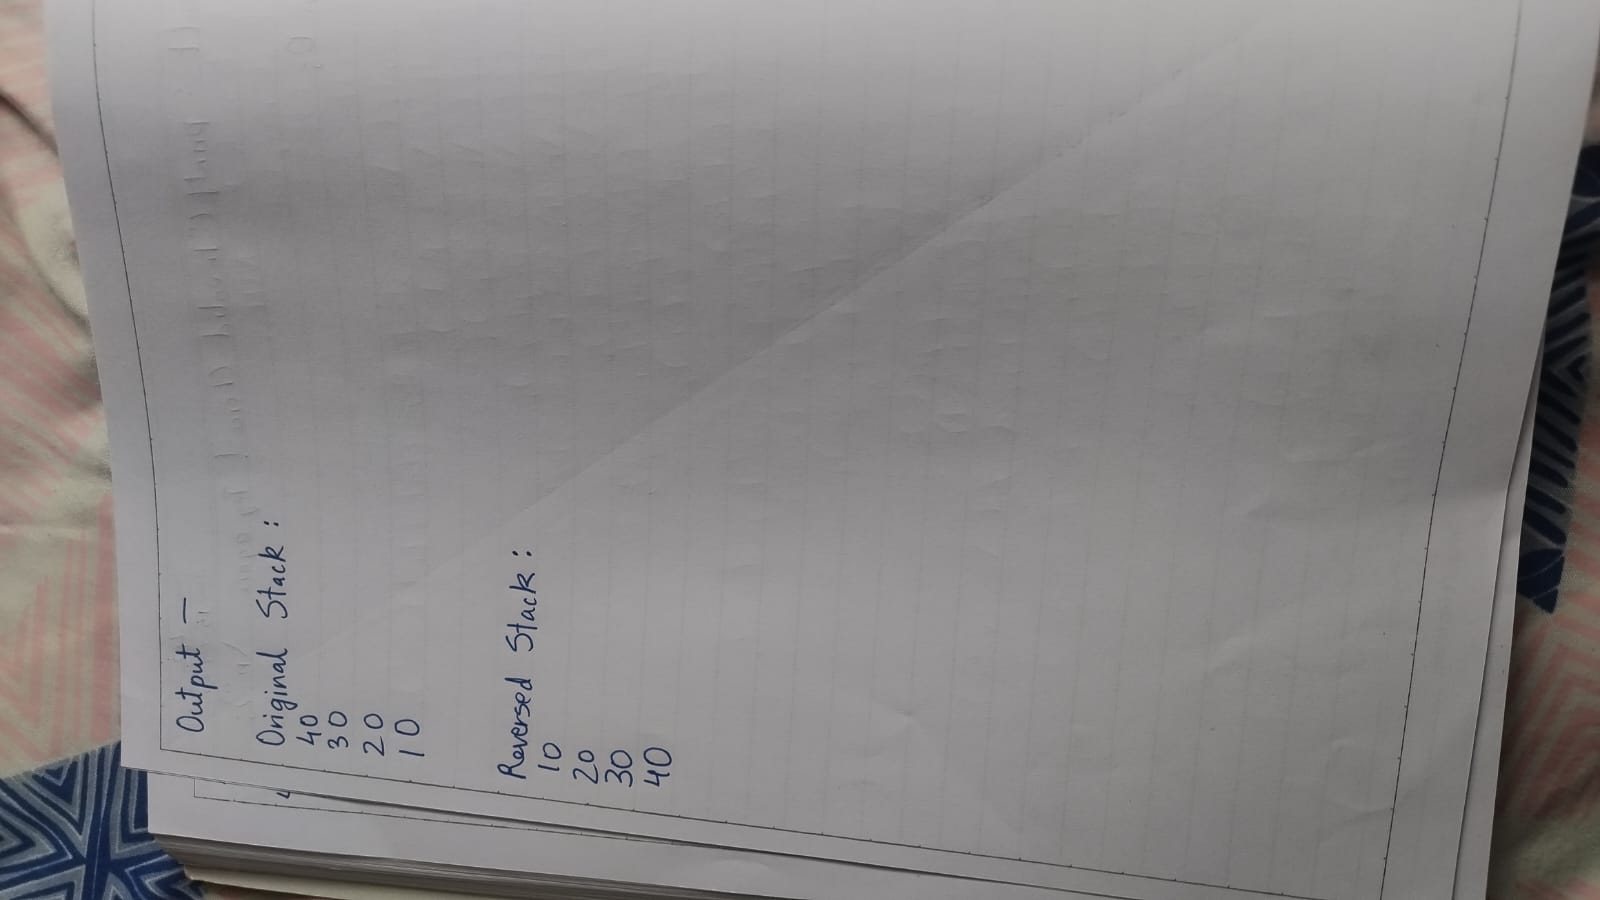 Output —
Original Stack :
40
30
20
10
Reversed Stack :
10
20
30
40